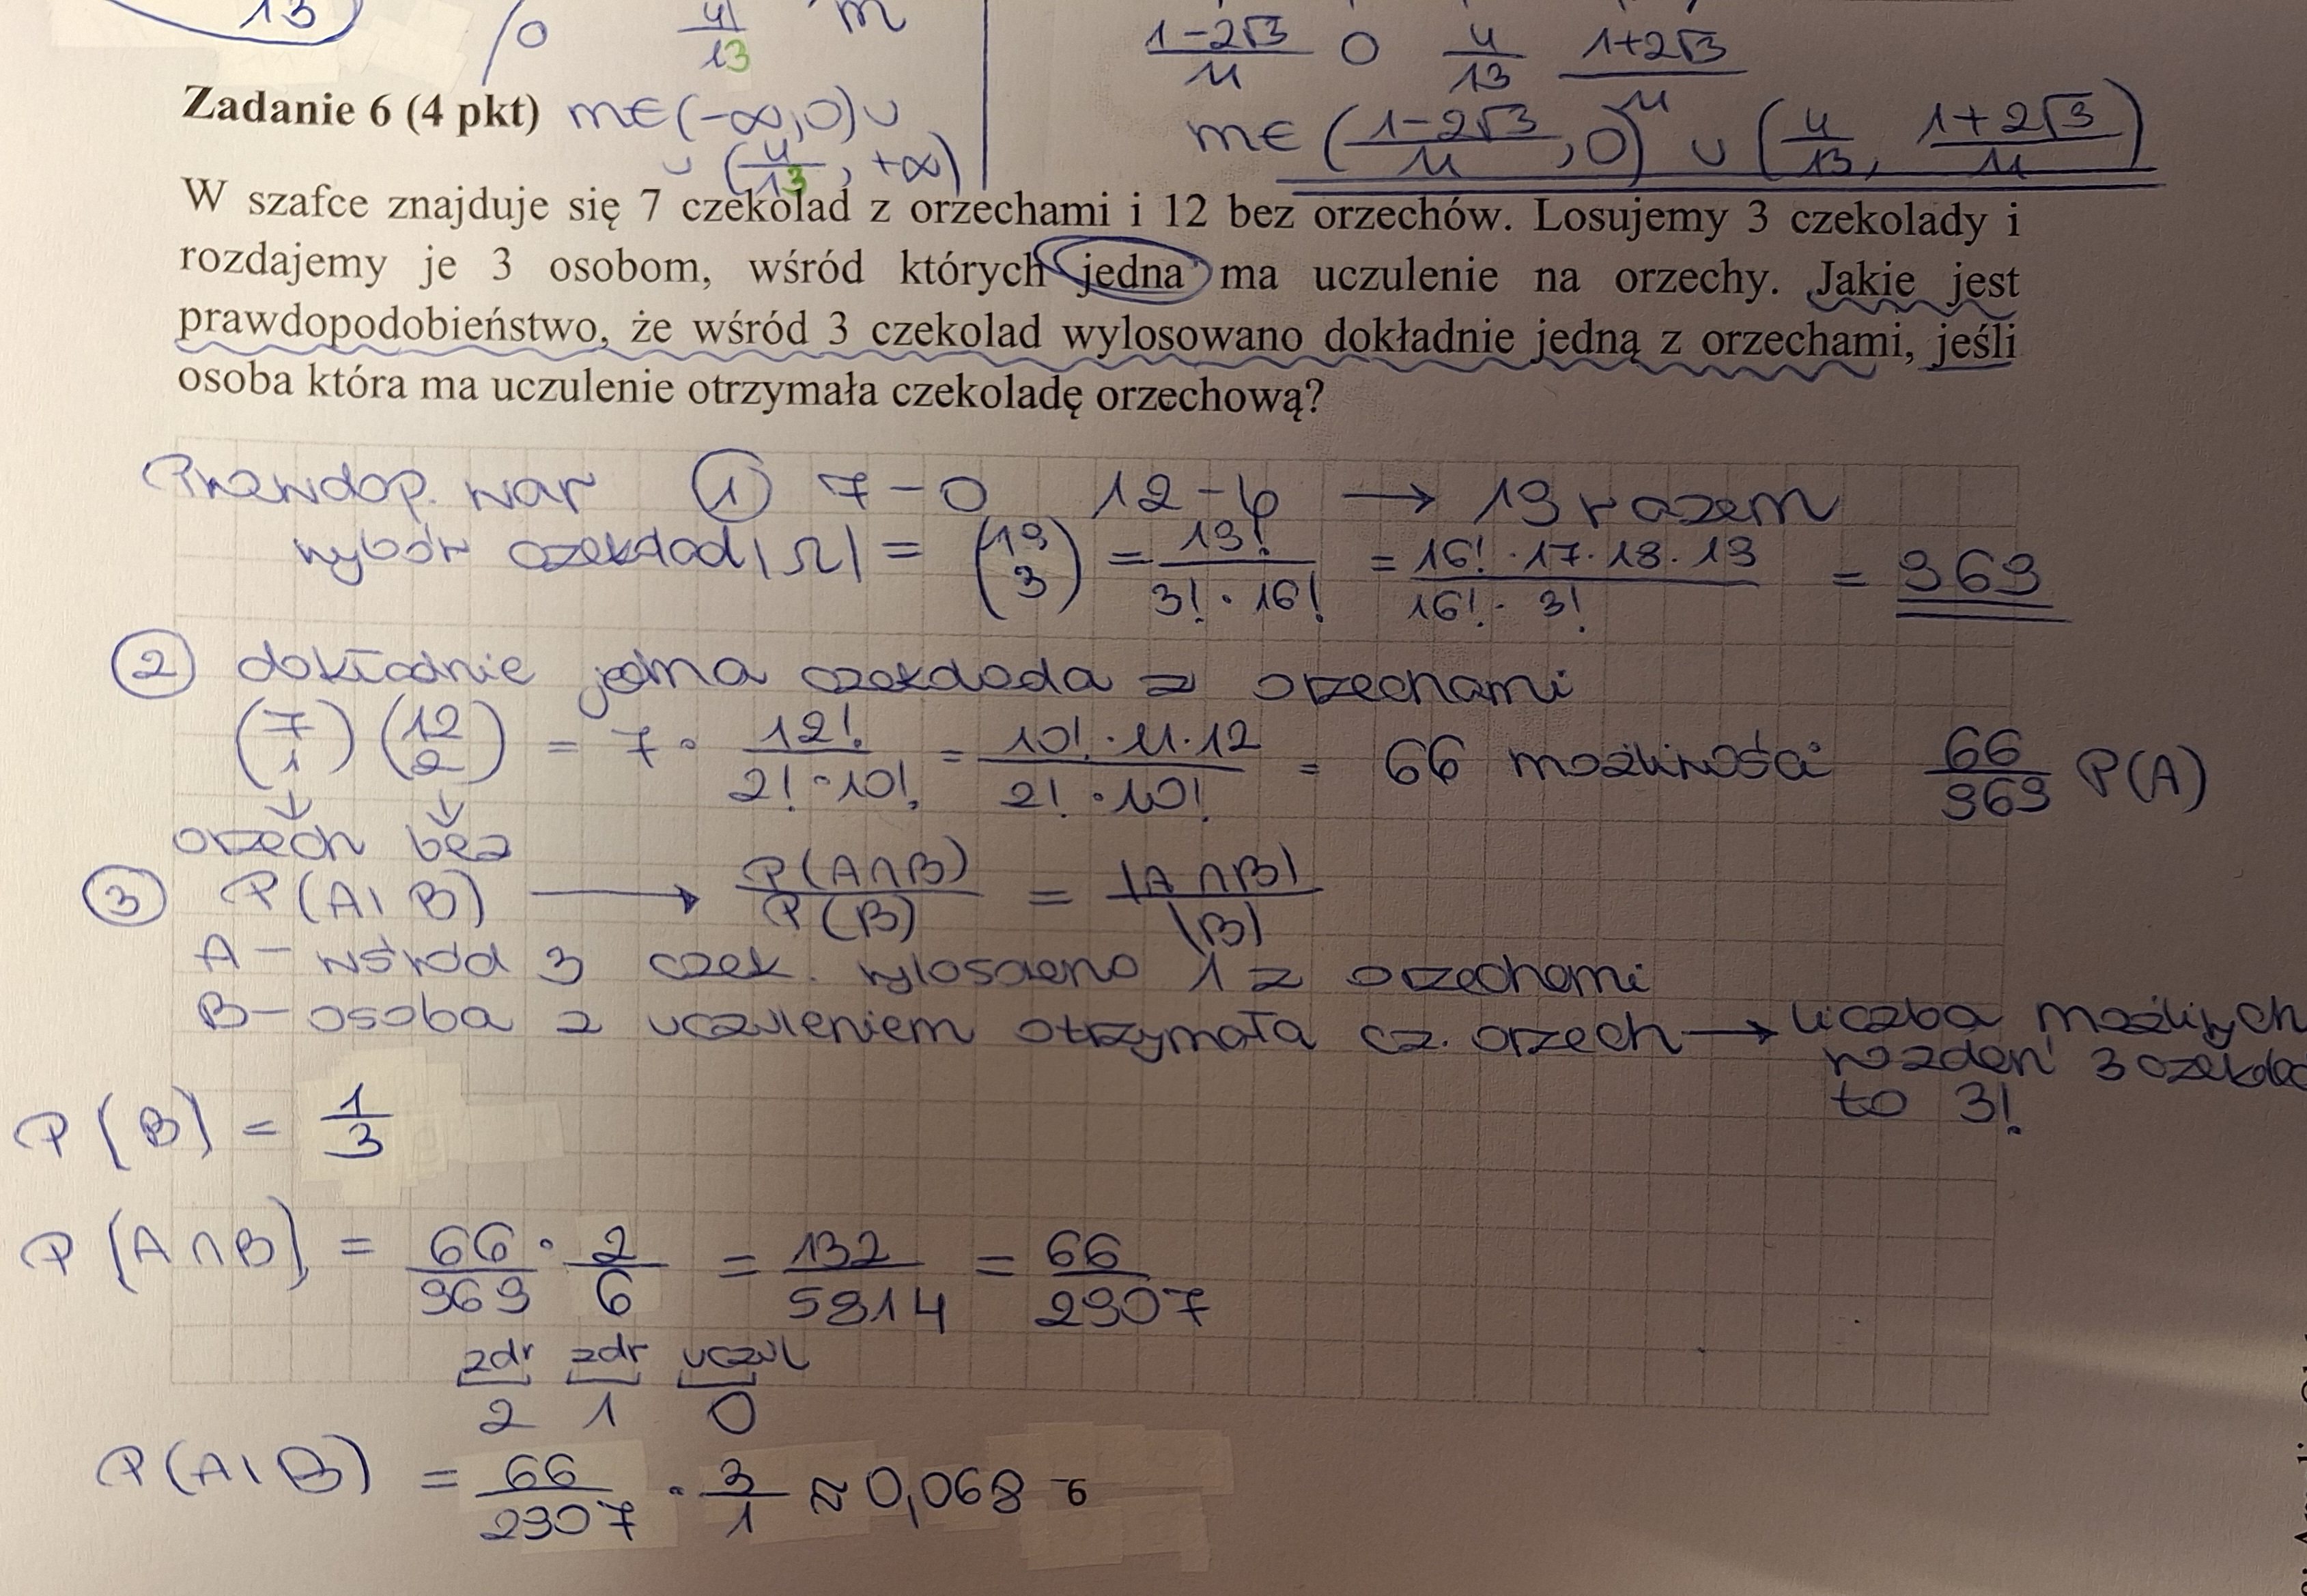 13
0 4/13 m
(1-2√3)/11 0 4/13 (1+2√3)/11
Zadanie 6 (4 pkt) m∈(-∞,0)∪
∪ (4/13, +∞)
m∈ ((1-2√3)/11, 0) ∪ (4/13, (1+2√3)/11)
W szafce znajduje się 7 czekolad z orzechami i 12 bez orzechów. Losujemy 3 czekolady i
rozdajemy je 3 osobom, wśród których jedna ma uczulenie na orzechy. Jakie jest
prawdopodobieństwo, że wśród 3 czekolad wylosowano dokładnie jedną z orzechami, jeśli
osoba która ma uczulenie otrzymała czekoladę orzechową?
Prawdop. war ① 7 – O 12 – → 19 razem
wybór czekolad |Ω| = (19 3) = 19!/(3! · 16!) = (16! · 17 · 18 · 19)/(16! · 3!) = 969
② dokładnie jedna czekolada z orzechami
(7 1) (12 2) = 7 · 12!/(2! · 10!) = (10! · 11 · 12)/(2! · 10!) = 66 możliwości 66/969 P(A)
↓ ↓
orzech bez
③ P(A|B) → P(A∩B)/P(B) = |A∩B|/|B|
A – wśród 3 czek. wylosowano 1 z orzechami
B – osoba z uczuleniem otrzymała cz. orzech → liczba możliwych
rozdań 3
to 3!
P(B) = 1/3
P(A∩B) = 66/969 · 2/6 = 132/5814 = 66/2907
zdr zdr uczul
2 1 0
P(A|B) = 66/2907 · 3/1 ≈ 0,068
6